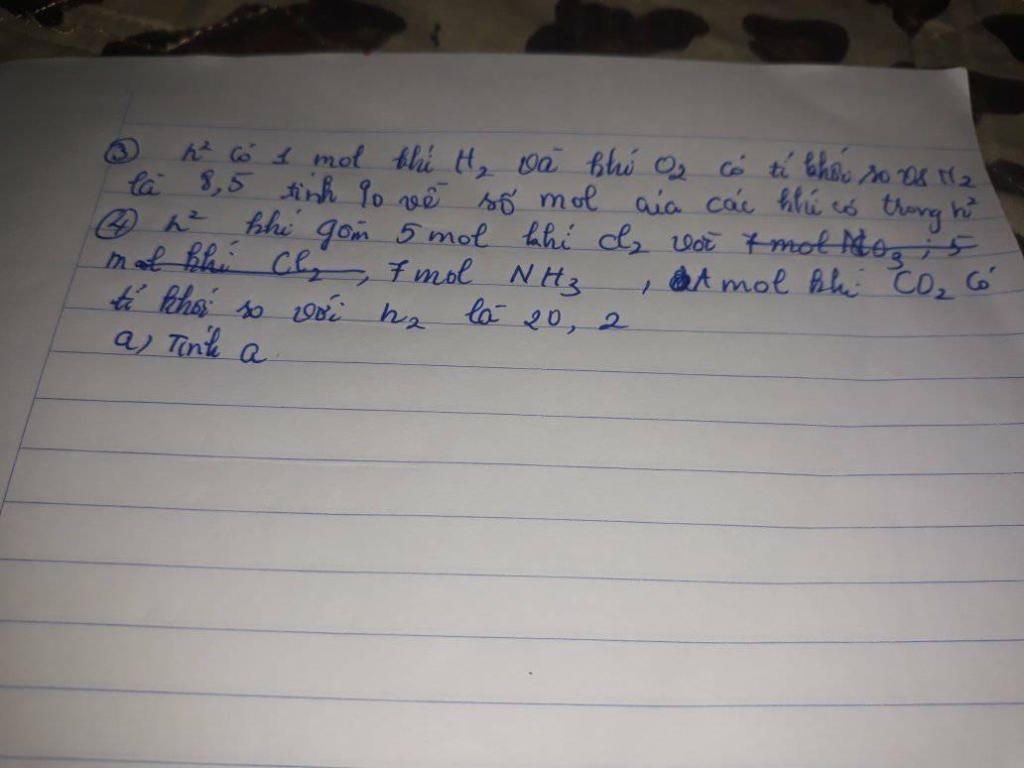 ③ h² có 1 mol khí H₂ và khí O₂ có tỉ khối so với H₂
là 8,5 tính % về số mol của các khí có trong h²
④ h² khí gồm 5 mol khí Cl₂ với 7 mol NO₃ ; 5
mol khí Cl₂, 7 mol NH₃ , A mol khí CO₂ Có
tỉ khối so với h₂ là 20,2
a) Tính a